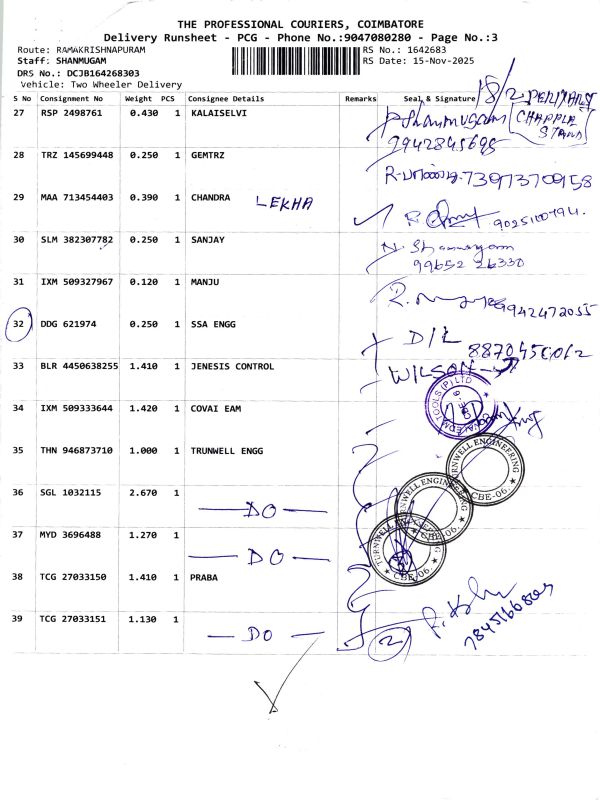 THE PROFESSIONAL COURIERS, COIMBATORE
Delivery Runsheet - PCG - Phone No.:9047080280 - Page No.:3
Route: RAMAKRISHNAPURAM
RS No.: 1642683
Staff: SHANMUGAM
RS Date: 15-Nov-2025
DRS No.: DCJB164268303
Vehicle: Two Wheeler Delivery
S No Consignment No Weight PCS Consignee Details Remarks Seal & Signature
18/2 PERUMAL
27 RSP 2498761 0.430 1 KALAISELVI Shanmugam CHAPPLE
STAND
9942845698
28 TRZ 145699448 0.250 1 GEMTRZ
7397370958
29 MAA 713454403 0.390 1 CHANDRA LEKHA
9025100794.
30 SLM 382307782 0.250 1 SANJAY N. Shanmugam
99652 26330
31 IXM 509327967 0.120 1 MANJU
9942472055
32 DDG 621974 0.250 1 SSA ENGG D/L
33 BLR 4450638255 1.410 1 JENESIS CONTROL WILSON
34 IXM 509333644 1.420 1 COVAI EAM
35 THN 946873710 1.000 1 TRUNWELL ENGG
TURNWELL ENGINEERING
CBE-06.
36 SGL 1032115 2.670 1 DO
TURNWELL ENGINEERING
37 MYD 3696488 1.270 1 DO
TURNWELL ENGINEERING
CBE-06.
38 TCG 27033150 1.410 1 PRABA
39 TCG 27033151 1.130 1 DO
2